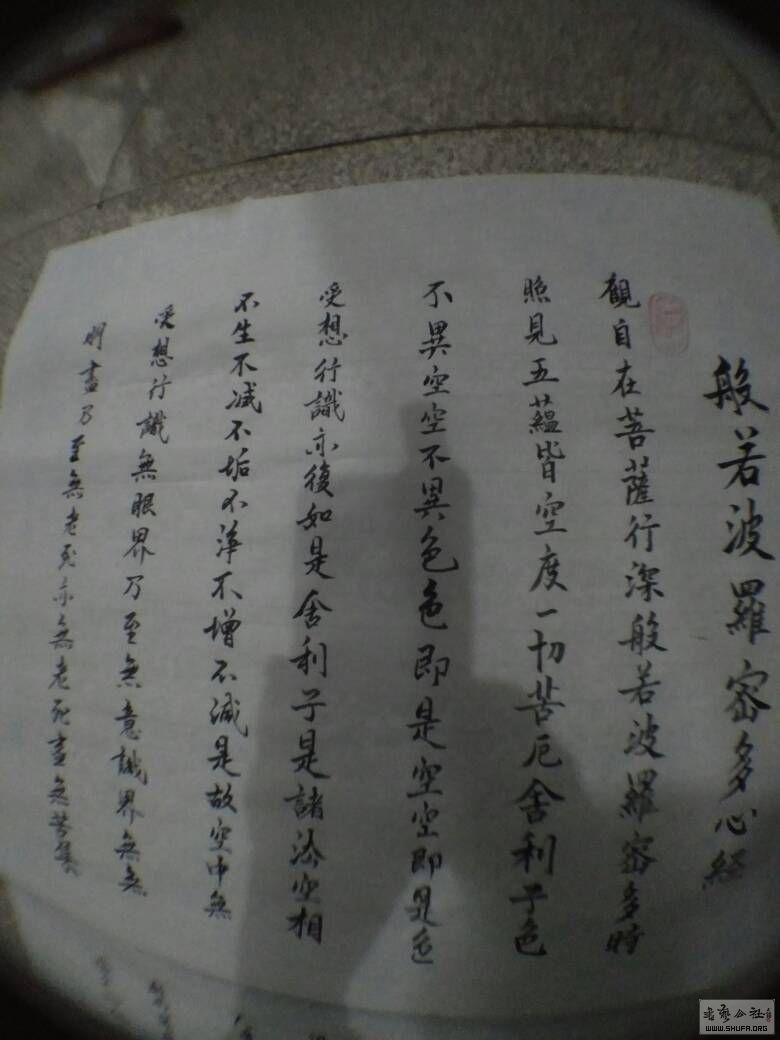 般若波羅密多心經
觀自在菩薩行深般若波羅密多時
照見五蘊皆空度一切苦厄舍利子色
不異空空不異色色即是空空即是色
受想行識亦後如是舍利子是諸法空相
不生不滅不垢不淨不增不減是故空中無
受想行識無眼界乃至無意識界無無
明盡乃至無老死亦無老死盡無苦集
書藝公社
WWW.SHUFA.ORG